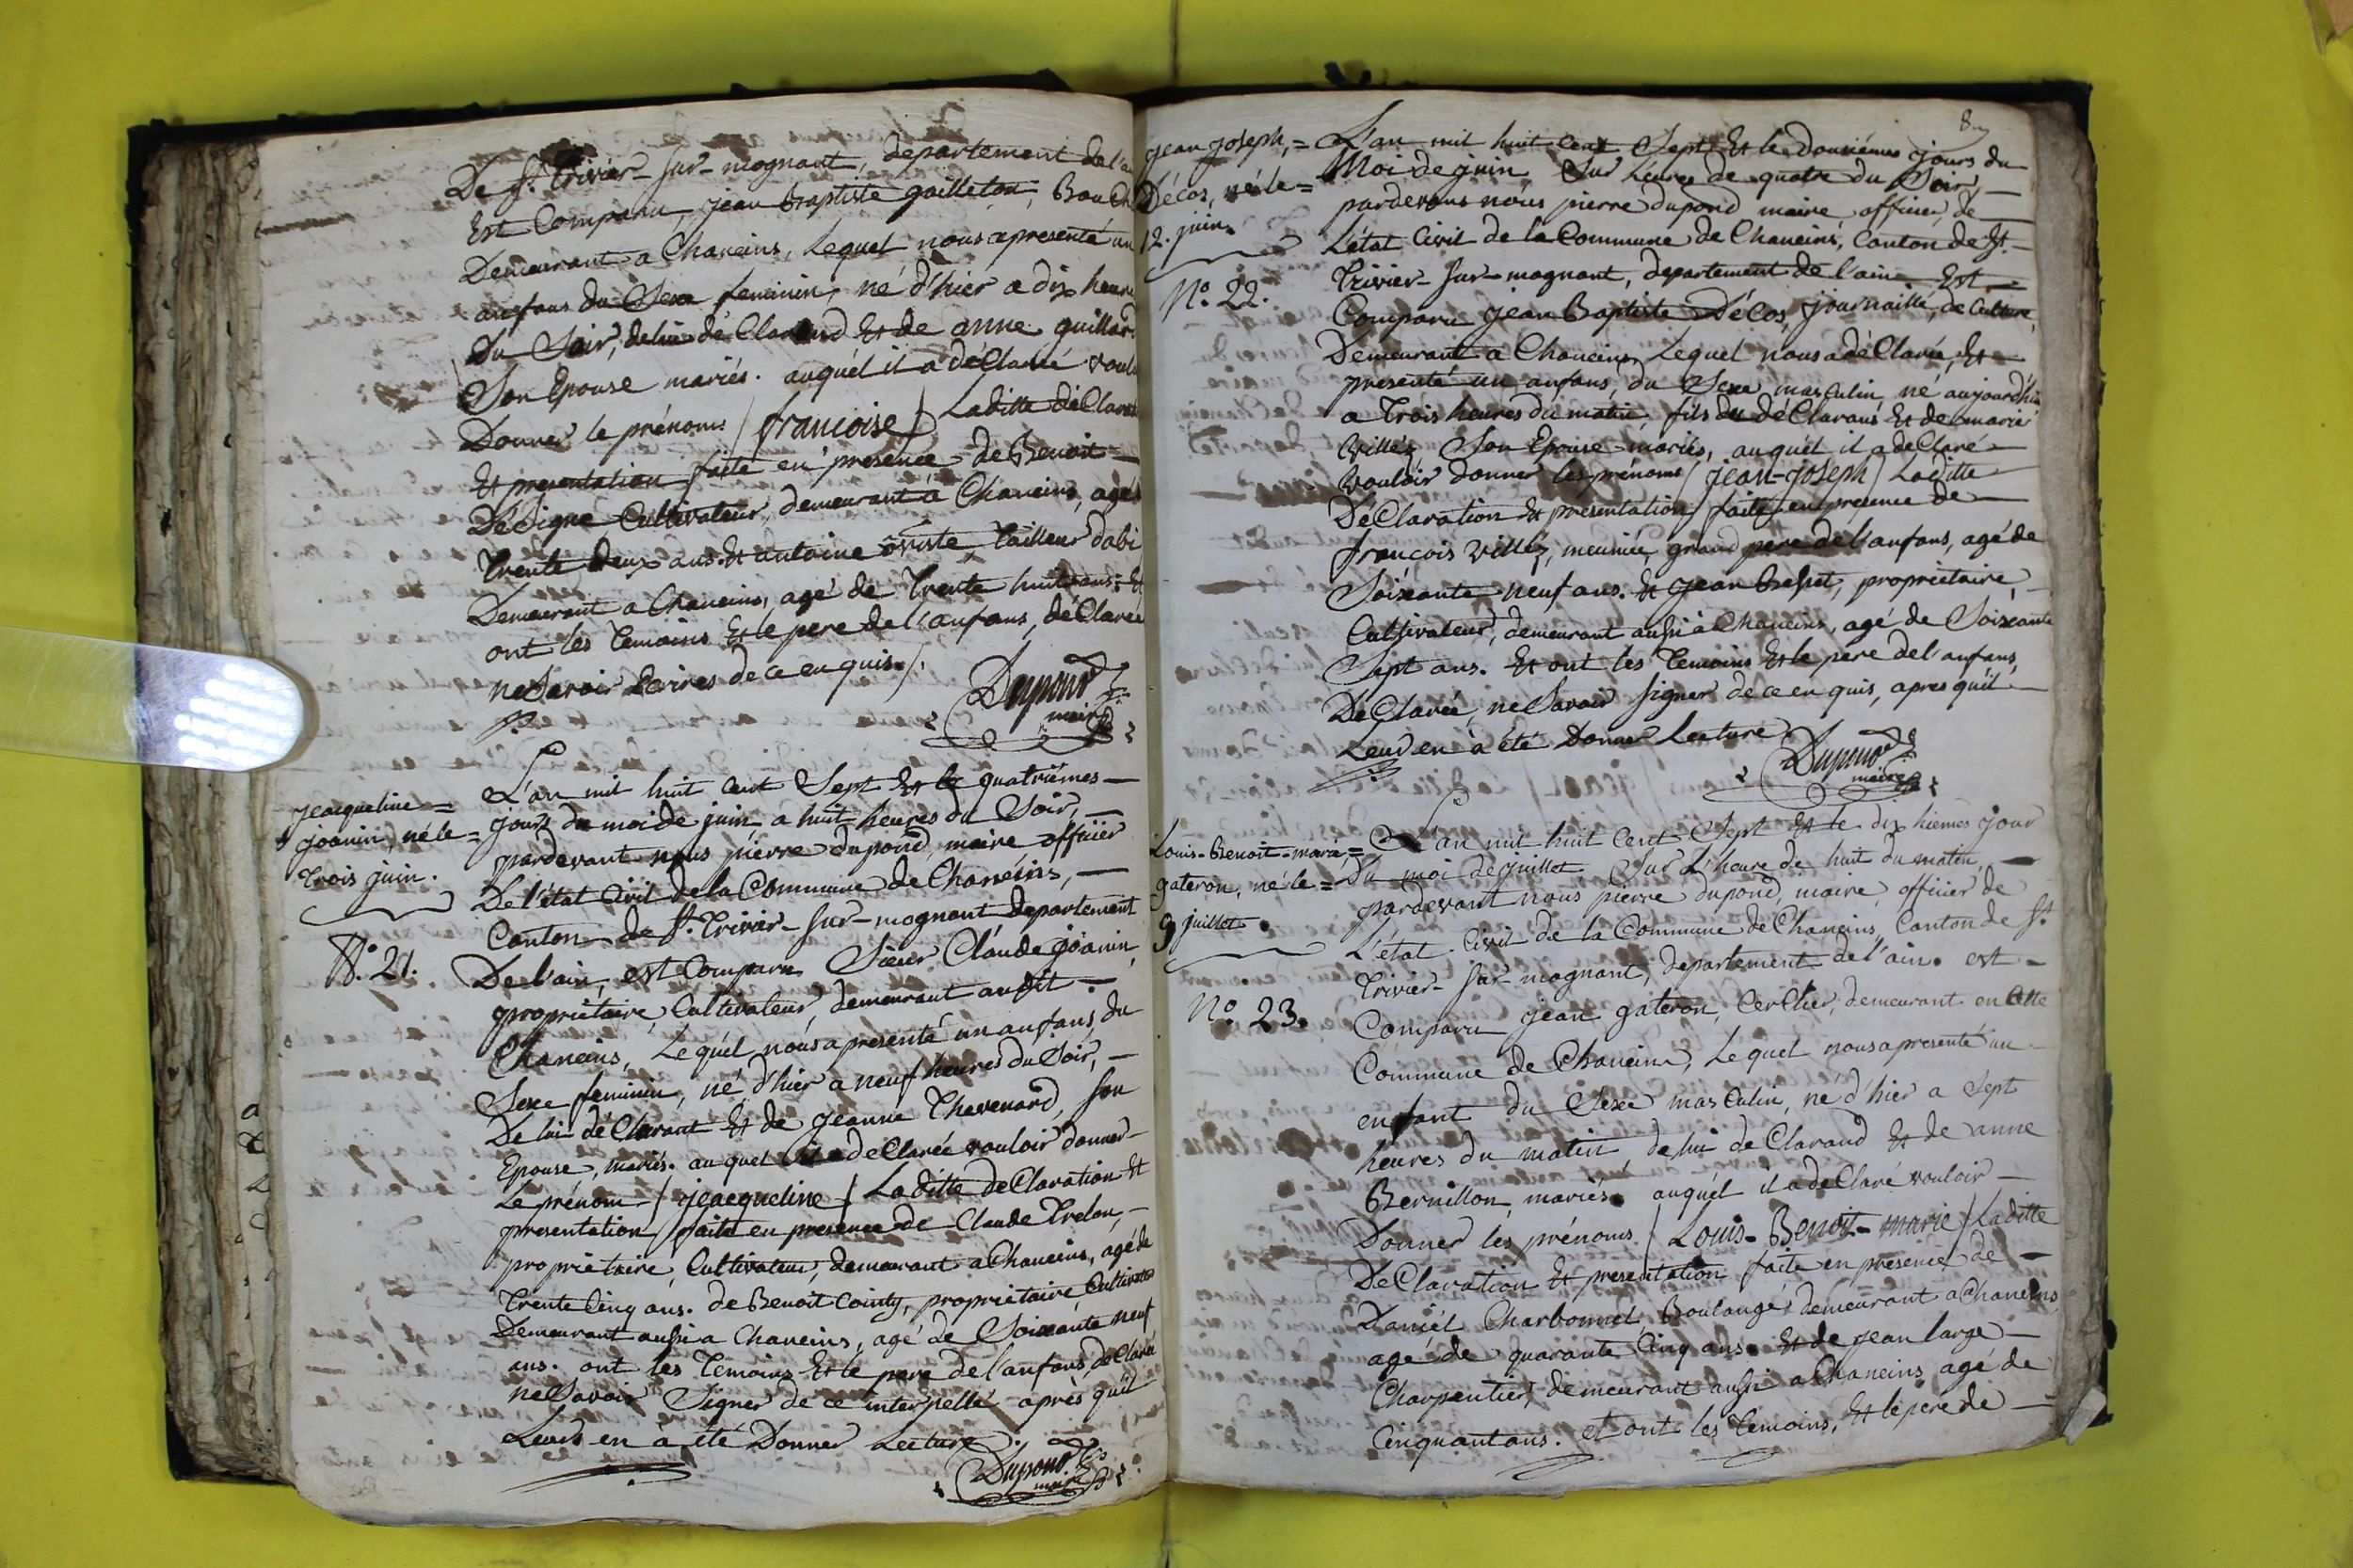 De St. Trivier-sur-mognant, departement de l'a
Est Comparu, jean Baptiste gailleton, Bouch
Demeurant a Chaneins, Lequel nous apresenté un
anfans du Sexe feminin, né d'hier a dix heure
du Soir, de lui dé Clarand Et de anne guillard
Son Epouse mariés. auquél il a dé Clareé voulo
Donner le prénoms / francoise / Laditte déClara
Et presentation faite en presence de Benoit
Désigne Cultivateur, demeurant à Chaneins, agé
Trente deux ans. Et antoine oviste, Tailleur dabi
Demeurant a Chaneins, agé de Trente huit ans. Et
ont les Temoins Et le pere de l'anfans, déClareé
ne Savoir Ecrires de ce en quis /.
Dupond
maire
jeacqueline =
joanin, né le =
Trois juin.
No. 21.
L'an mil huit cent Sept Et le quatriémes
jours du moi de juin a huit heures du Soir,
pardevant nous pierre dupond, maire officiér
De l'état Civil de la Commune de Chaneins,
Canton de St. Trivier-sur-mognant departement
De l'ain, est Comparu Sieur Claude joanin,
propriétaire Cultivateur, demeurant au dit
Chaneins, Lequél nous a presenté un anfans, du
Sexe feminin, né d'hier a neuf heures du Soir,
De lui dé Clarant Et de jeanne Thevenard, son
Epouse, mariés. auquel il a deClareé vouloir donner
Le prénom / jeacqueline / Laditte deClaration Et
presentation / faite en presence de Claude Trelon,
proprietaire, Cultivateur, demeurant a Chaneins, agé de
Trente Cinq ans. de Benoit Cointy, propriétaire Cultivateur
Demeurant aussi a Chaneins, agé de Soixante neuf
ans. ont les Temoins Et le pere de l'anfans, deClareé
ne Savoir Signer de ce interpellé après qu'il
Leurs en à été Donner Lecture.
Dupond
maire
8
jean joseph, =
Décos, né le =
12. juin.
No. 22.
L'an mil huit Cent Sept Et le douxiémes jours du
Moi de juin Sur Leures de quatre du Soir,
pardevans nous pierre dupond maire officier de
L'état Civil de la Commune de Chaneins, Canton de St.
Trivier-sur-mognant, departement de l'ain Est
Comparu jean Baptiste Décos, journaillé, de Culture,
Demeurant à Chaneins, Lequel nous a déClareé, Et
presenté un anfans, du Sexe masculin, né aujourd'hui
a Trois heures du matin, fils du déClarans Et de marie
Villéz Son Epouse mariés, auquél il a deClaré
vouloir donner les prénoms / jean-joseph / Laditte
DéClaration Et presentation / faite en presence de
françois Villéz, meunier, grand pere de l'anfans, agé de
Soixante neuf ans. Et jean Bessiet, propriétaire
Cultivateur, demeurant aussi à Chaneins, agé de Soixante
Sept ans. Et ont les Temoins Et le pere del'anfans,
DéClareé, ne Savoir signer de ce en quis, apres qu'il
Leud en à été Donner Lecture
Dupond
maire
Louis-Benoit-marie =
gateron, né le =
9 juillet.
No. 23.
L'an mil huit Cent Sept Et le dix hiemes jour
du moi de juillet Sur L'heure de huit du matin,
pardevant nous pierre dupond, maire, officier de
L'état Civil de la Commune de Chaneins, Canton de St.
Trivier-sur-mognant, departement de l'ain. est
Comparu jean gateron, Cerclier, demeurant en Cette
Commune de Chaneins, Lequel nous a presenté un
enfant du Sexe masCulin, né d'hier a Sept
heures du matin de lui de Clarand Et de anne
Bernillon, mariés. auquél il a de Claré vouloir
Donner les prénoms / Louis-Benoit-marie / Laditte
DeClaration Et presentation faite en presence de
Daniél Charbonnet, Boulangé demeurant a Chaneins,
agé de quarante Cinq ans. Et de jean large
Charpentier, demeurant aussi a Chaneins agé de
Cinquant ans. et ont les Temoins, Et le pere de